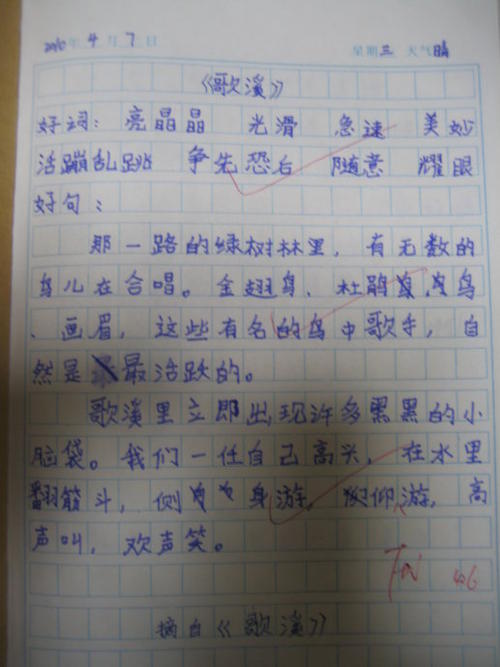 2010年4月7日 星期三 天气晴
《歌溪》
好词：亮晶晶 光滑 急速 美妙
活蹦乱跳 争先恐后 随意 耀眼
好句：
那一路的绿树林里，有无数的
鸟儿在合唱。金翅鸟、杜鹃鸟
、画眉，这些有名的鸟中歌手，自
然是最活跃的。
歌溪里立即出现许多黑黑的小
脑袋。我们一任自己高兴，在水里
翻筋斗，侧身游，仰游，高
声叫，欢声笑。
4.6
摘自《歌溪》